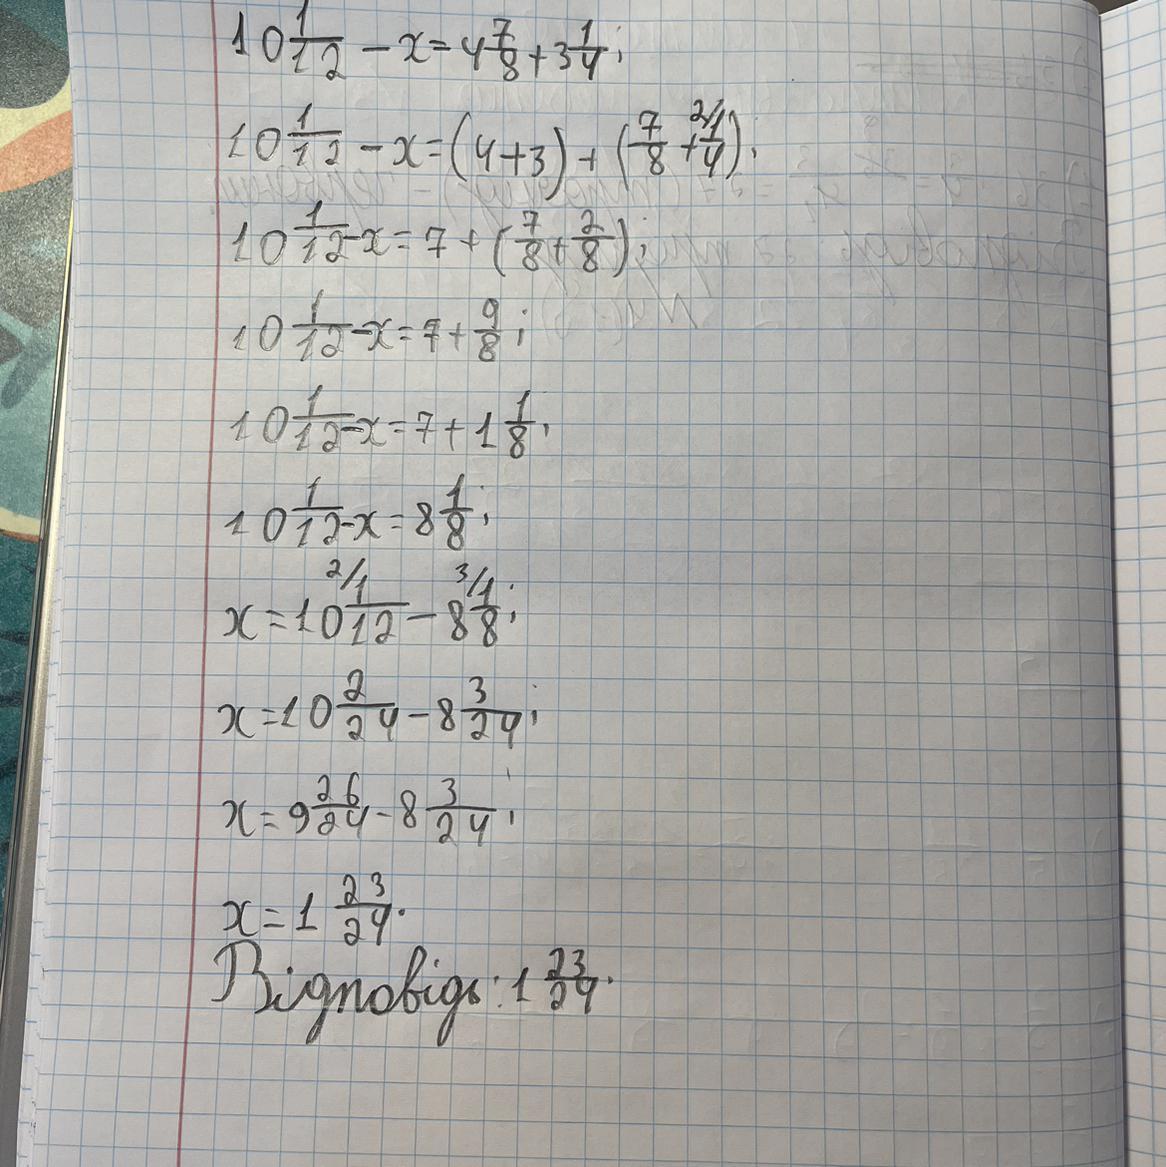 10 1/12 - x = 4 7/8 + 3 1/4;
10 1/12 - x = (4+3) + (7/8 + 2/ 1/4);
10 1/12 - x = 7 + (7/8 + 2/8);
10 1/12 - x = 7 + 9/8;
10 1/12 - x = 7 + 1 1/8;
10 1/12 - x = 8 1/8;
x = 10 2/ 1/12 - 8 3/ 1/8;
x = 10 2/24 - 8 3/24;
x = 9 26/24 - 8 3/24;
x = 1 23/24.
Відповідь: 1 23/24.